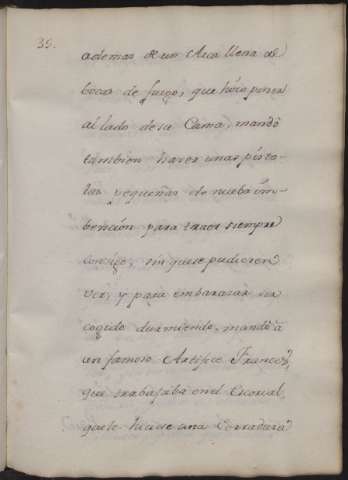 39.
ademas de un Arca llena de
bocas de fuego, que hizo poner
al lado de su Cama, mandó
tambien hacer unas pisto-
las pequeñas de nueba im-
bencion para traer siempre
consigo, sin que se pudiesen
ver, y para embarazar ser
cogido durmiendo, mandó à
un famoso Artifice Frances,
que trabajaba en el Escorial,
que le hiciese una Cerradura